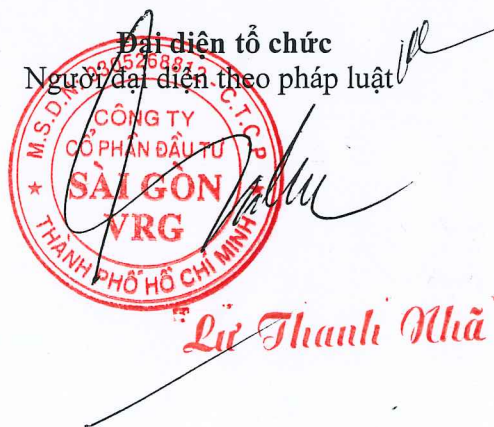 Đại diện tổ chức
Người đại diện theo pháp luật
M.S.D.N: 0305268812 - C.T.C.P
CÔNG TY
CỔ PHẦN ĐẦU TƯ
SÀI GÒN
VRG
THÀNH PHỐ HỒ CHÍ MINH
Lư Thanh Nhã